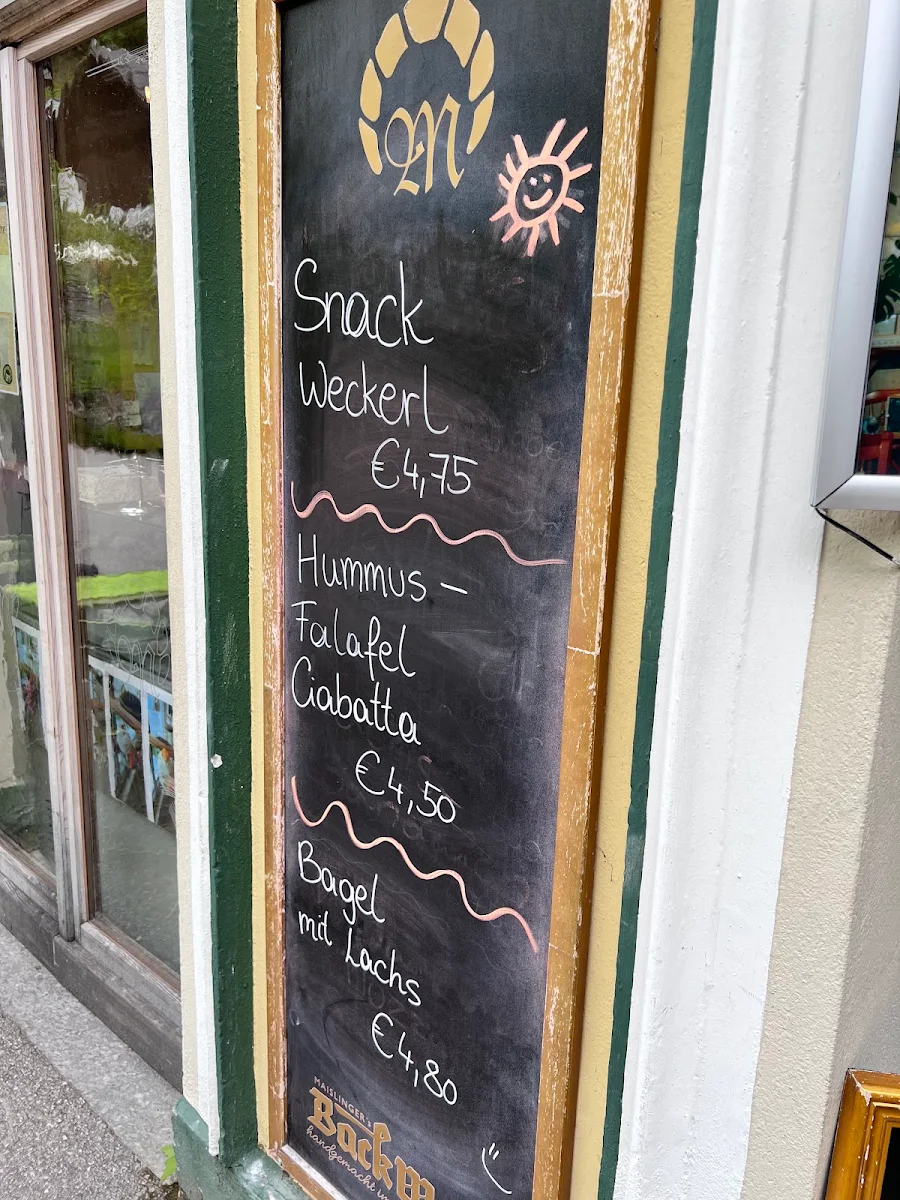 M
Snack
Weckerl
€4,75
Hummus –
Falafel
Ciabatta
€4,50
Bagel
mit Lachs
€4,80
MAISLINGER'S
BackM
handgemacht in